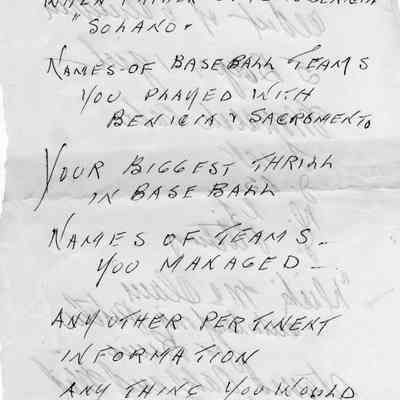 WHEN FATHER
"SOLANO"
NAMES-OF BASEBALL TEAMS
YOU PLAYED WITH
BENICIA & SACROMENTO
YOUR BIGGEST THRILL
IN BASEBALL
NAMES OF TEAMS-
YOU MANAGED-
ANY OTHER PERTINENT
INFORMATION
ANY THING YOU WOULD